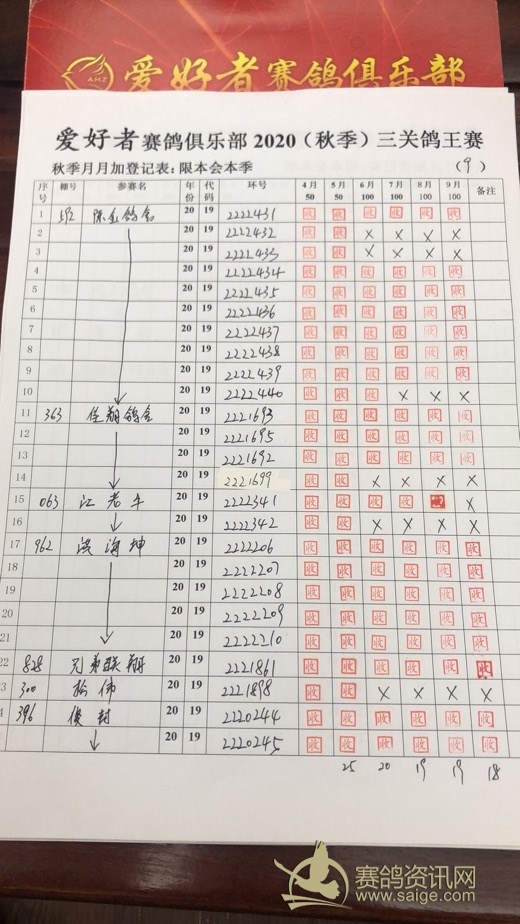 AHZ 爱好者赛鸽俱乐部
爱好者赛鸽俱乐部 2020（秋季）三关鸽王赛
秋季月月加登记表：限本会本季 （9）
序号 棚号 参赛名 年份 代码 环号 4月50 5月50 6月100 7月100 8月100 9月100 备注
1 20 19 2222431 收 收 收 收 收 收
2 20 19 2222432 收 收 × × × ×
3 20 19 2222435 收 收 × × × ×
4 20 19 2222434 收 收 收 收 收 收
5 20 19 2222435 收 收 收 收 收 收
6 20 19 2222436 收 收 收 收 收 收
7 20 19 2222437 收 收 收 收 收 收
8 20 19 2222438 收 收 收 收 收 收
9 20 19 2222439 收 收 收 收 收 收
10 20 19 2222440 收 收 收 × × ×
11 363 佳翔鸽舍 20 19 2221693 收 收 收 收 收 收
12 20 19 2221695 收 收 收 收 收 收
13 20 19 2221692 收 收 收 收 收 收
14 20 19 2221699 收 收 × × × ×
15 063 江老牛 20 19 2222341 收 收 收 收 收 ×
16 20 19 2222342 收 收 × × × ×
17 962 洪海坤 20 19 2222206 收 收 收 收 收 收
18 20 19 2222207 收 收 收 收 收 收
19 20 19 2222208 收 收 收 收 收 收
20 20 19 2222209 收 收 收 收 收 收
21 20 19 2222210 收 收 收 收 收 收
22 828 兄弟联翔 20 19 2221861 收 收 收 收 收 收
3 300 20 19 2221898 收 收 × × × ×
4 396 俊封 20 19 2220244 收 收 收 收 收 收
20 19 2220245 收 收 收 收 收 收
25 20 19 19 18
赛鸽资讯网
www.saige.com